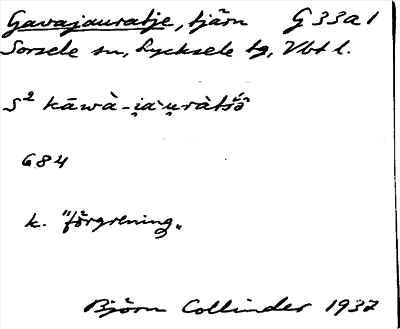 Gavajauratje, tjärn G 33a1
Sorsele sn, Lycksele tg, Vbt l.
S² kāwà-i̯a-u̯ràtsō̂
684
k. "förgrening"
Björn Collinder 1937